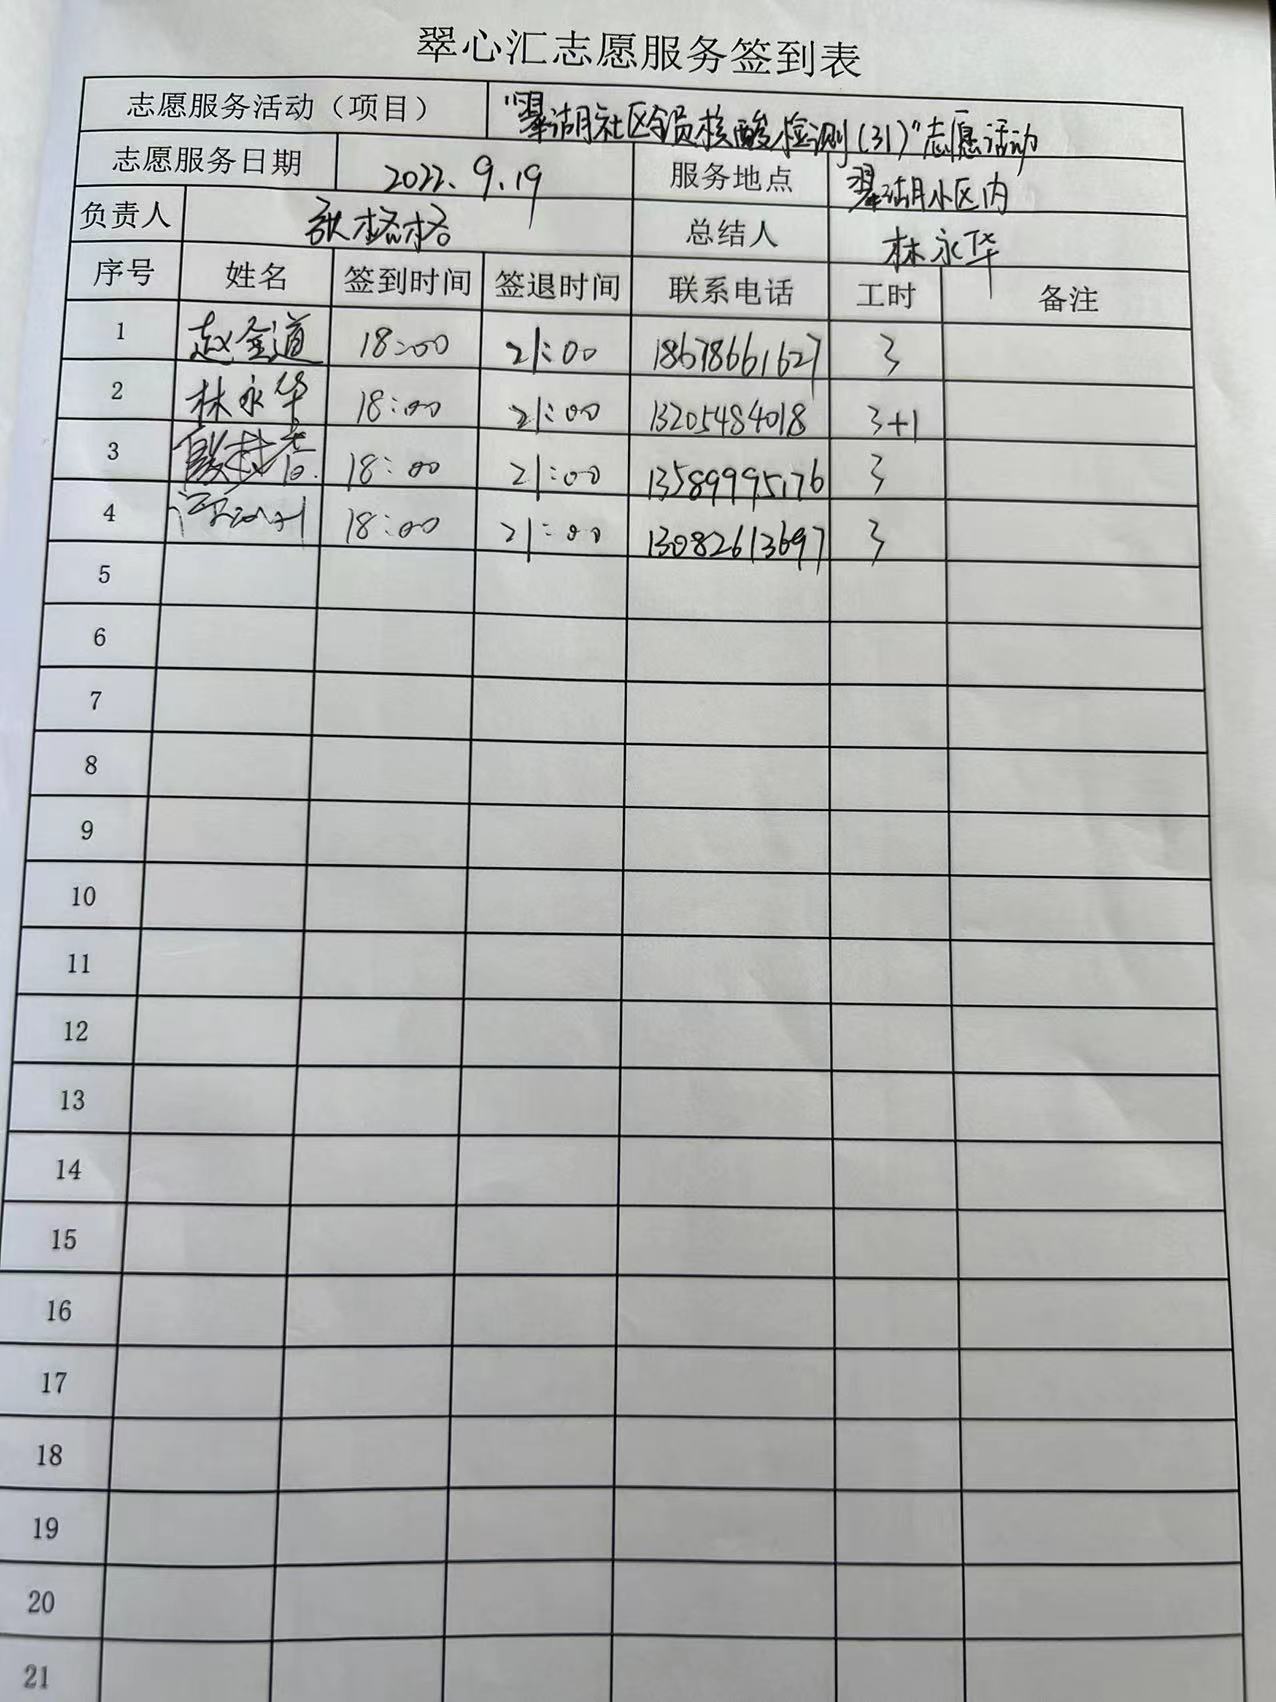 翠心汇志愿服务签到表
志愿服务活动（项目） "翠湖社区全员核酸检测(31)"志愿活动
志愿服务日期 2022.9.19 服务地点 翠湖小区内
负责人 张格格 总结人 林永华
序号 姓名 签到时间 签退时间 联系电话 工时 备注
1 赵金道 18:00 21:00 18678661627 3
2 林永华 18:00 21:00 13205484018 3+1
3 18:00 21:00 13589995176 3
4 18:00 21:00 13082613697 3
5
6
7
8
9
10
11
12
13
14
15
16
17
18
19
20
21